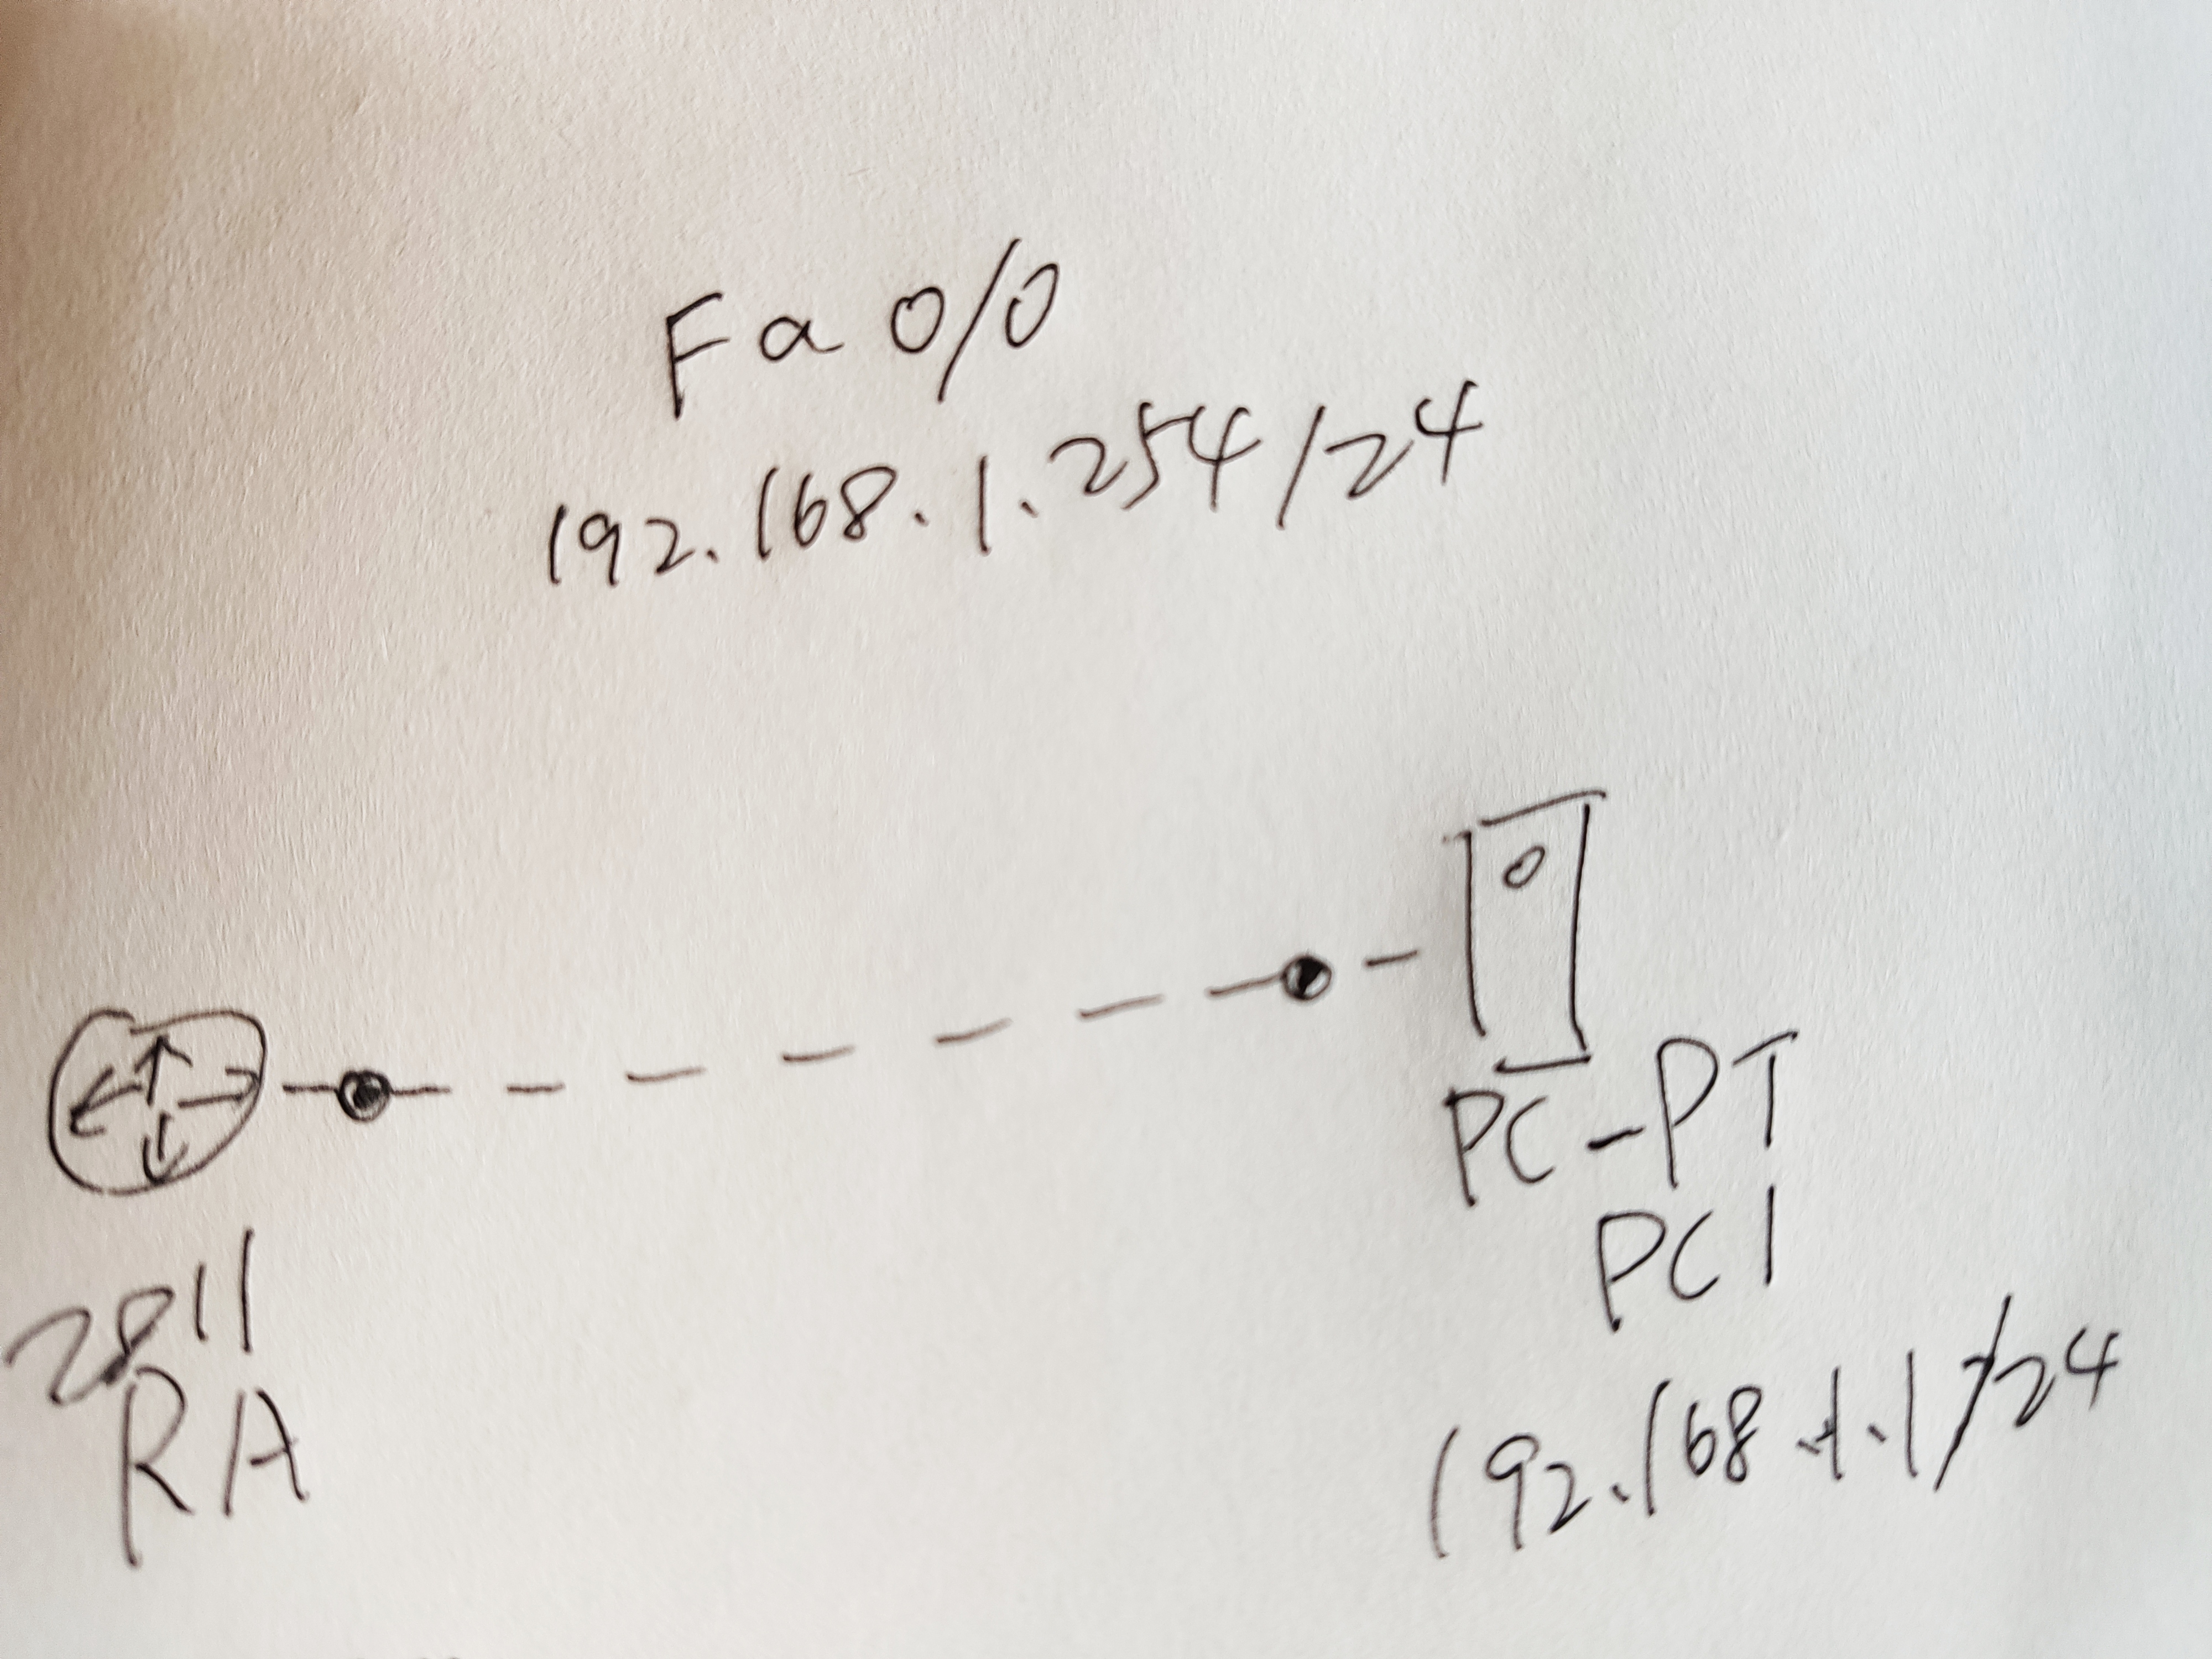 Fa 0/0
192.168.1.254/24
2811
R1A
PC-PT
PC1
192.168.1.1/24